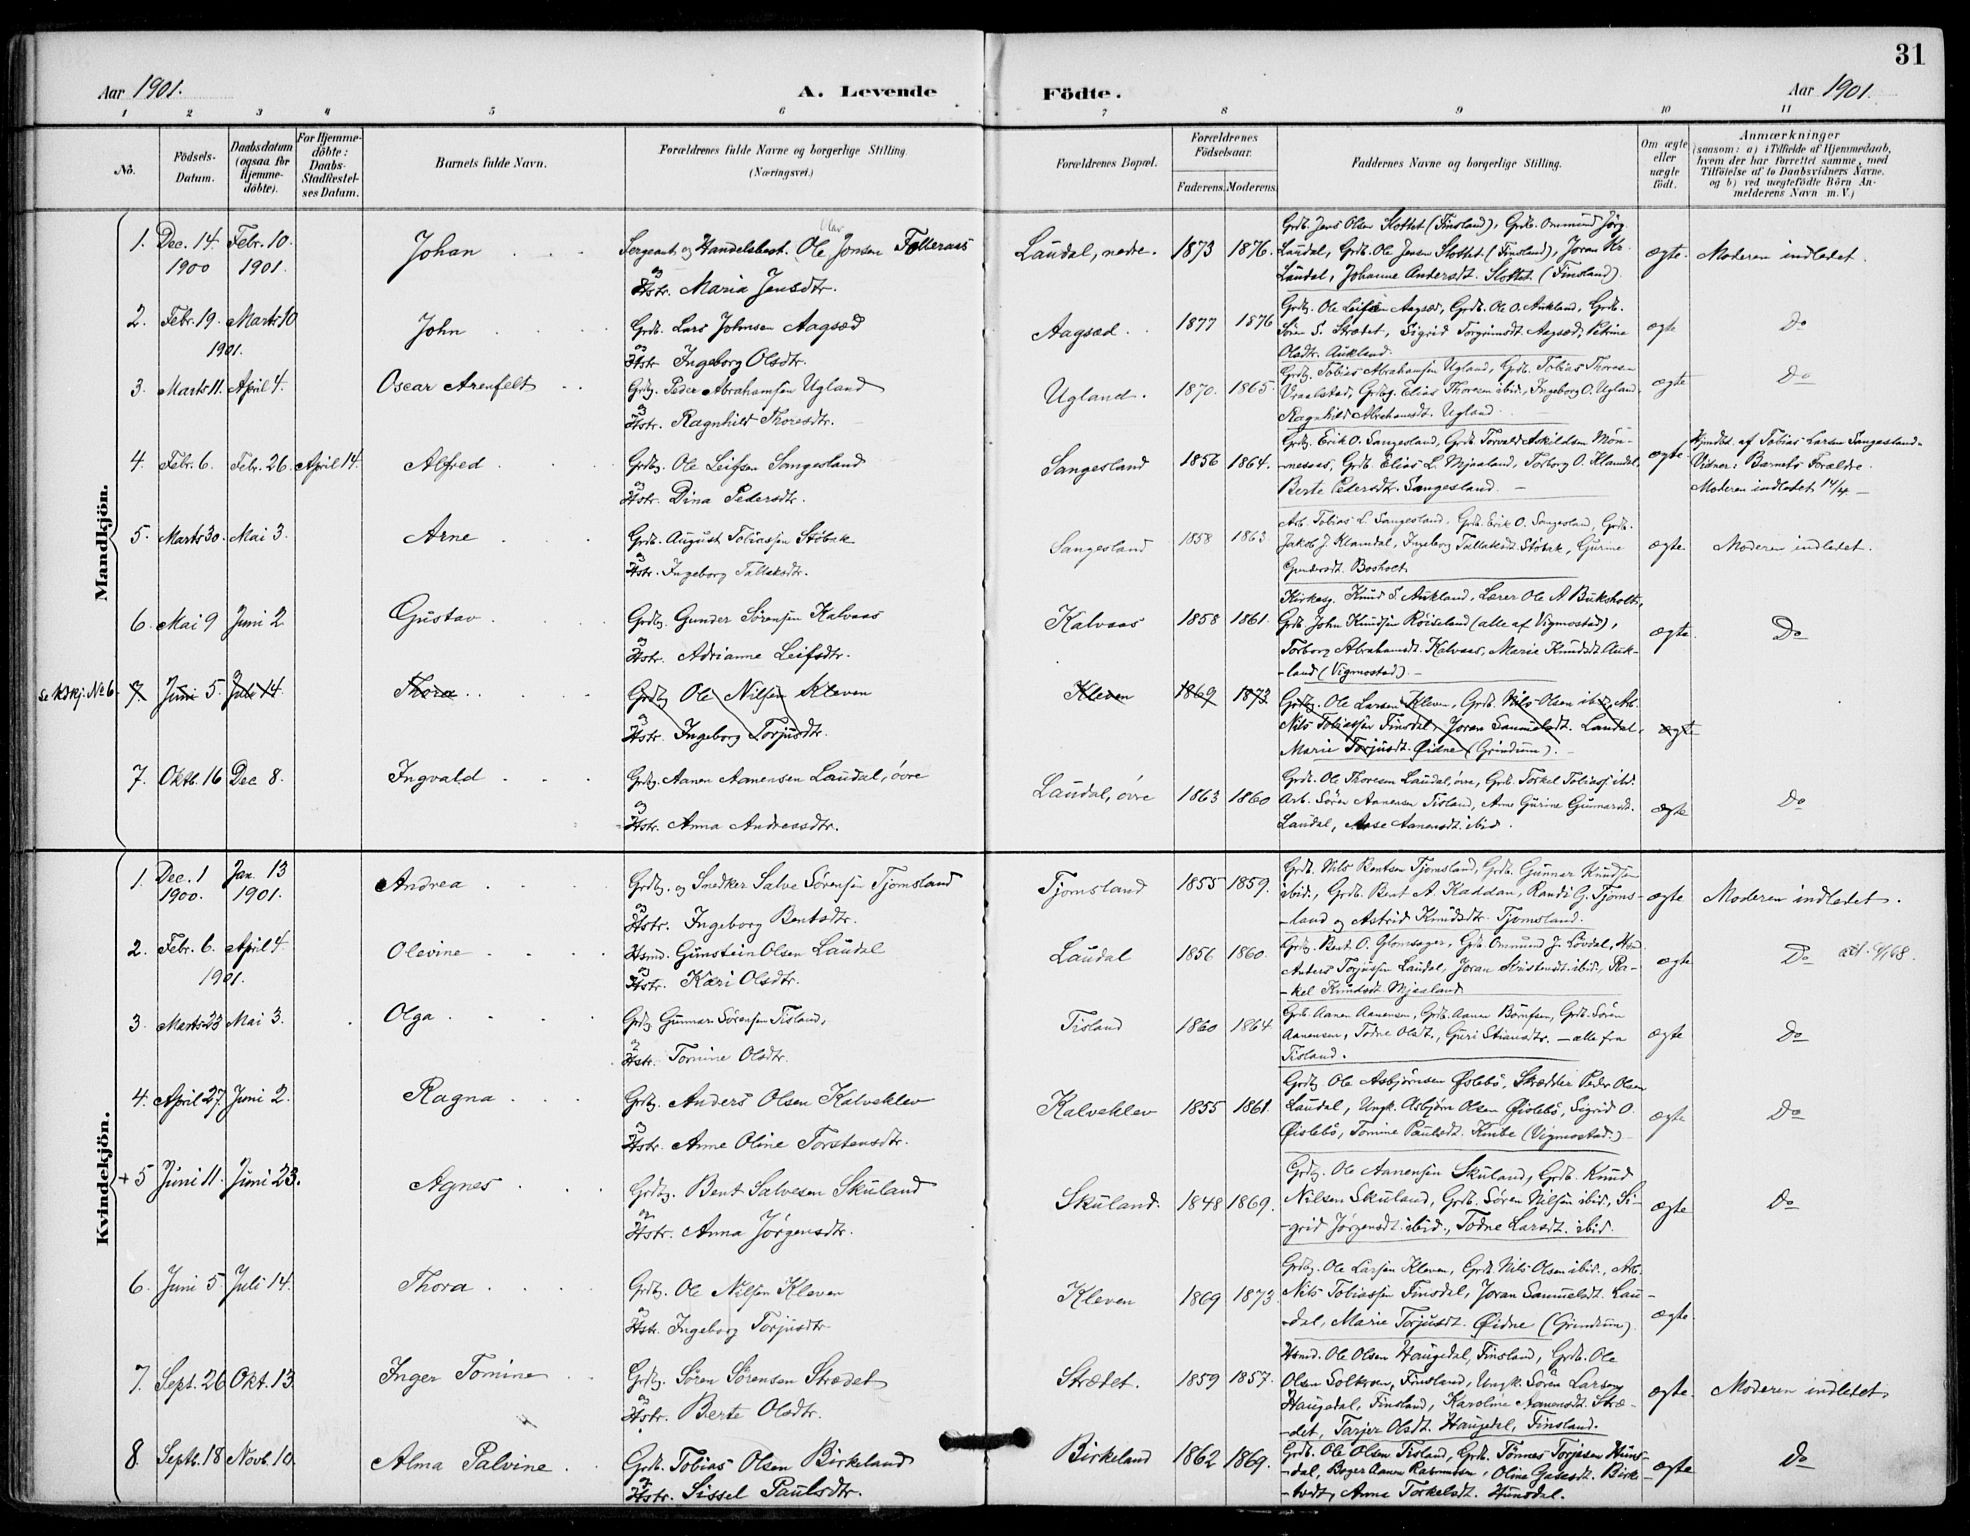 31
Aar 1901.
A. Levende
Födte.
Aar 1901.
1 2 3 4 5 6 7 8 9 10 11
No.
Födsels-Datum.
Daabsdatum (ogsaa for Hjemme-döbte).
For Hjemme-döbte: Daabs-Stadfæstel-ses Datum.
Barnets fulde Navn.
Forældrenes fulde Navne og borgerlige Stilling.
(Næringsvei.)
Forældrenes Bopæl.
Forældrenes Födselsaar.
Faderens. Moderens.
Faddernes Navne og borgerlige Stilling.
Om ægte eller uægte født.
Anmærkninger
(saasom: a) i Tilfælde af Hjemmedaab,
hvem der har forrettet samme, med
Tilföielse af to Daabsvidners Navne.
og b) ved uegtefödte Börn An-
melderens Navn m. V.)
Mandkjön.
1. Dec. 14. 1900 Febr. 10. 1901. Johan
Sergeant og Handelsbest. Ole Jensen
og Hstr. Maria Jensdtr.
Laudal, nedre. 1873 1876.
Grdb. Jens Olsen Slottet (Finsland), Grdb. Ommund Jörg.
Laudal, Grdb. Ole Jensen Slottet (Finsland), Joran Kr.
Laudal, Johanne Andersdt. Slottet. (Finsland).
ægte. Moderen indledet.
2. Febr. 19. Marts 10 1901. John
Grdb. Lars Johnsen Aagsæd
og Hstr. Ingeborg Olsdtr.
Aagsæd. 1877 1876
Grdbg. Ole Leifsen Aagsæd, Grdb. Ole O. Aukland, Grdb.
Sören S. Strædet, Sigrid Torgrimsdt. Aagsæd, Petrine
Olsdtr. Aukland.
ægte Do
3. Marts 11. April 4. Oscar Arenfelt
Grdbg. Peder Abrahamsen Ugland
og Hstr. Ragnhild Thoresdtr.
Ugland. 1870. 1865.
Grdbg. Tobias Abrahamsen Ugland, Grdb. Tobias Thores-
Vraalstad, Grdbg. Elias Thoresen ibid., Ingeborg O. Ugland,
Ragnhild Abrahamsdt. Ugland.
ægte Do
4. Febr. 6. Febr. 26 April 14. Alfred
Grdbg. Ole Leifsen Sangesland
og Hstr. Dina Pedersdtr.
Sangesland 1856 1864.
Grdbg. Erik O. Sangesland, Grdb. Torvald Askildsen Mön-
-nesaas, Grdb. Elias L. Mjaaland, Torborg O. Klamdal,
Berte Pedersdtr. Sangesland. —
ægte. Hjmdbt. af Tobias Larsen Sangesland.
Vidner: Barnets Forældre.
Moderen indledet 14/4 —
5. Marts 30. Mai 3. Arne
Grdb. August Tobiassen Stöbak
og Hstr. Ingeborg Tallaksdtr.
Sangesland 1858 1863
Arb. Tobias L. Sangesland, Grdb. Erik O. Sangesland, Grdb.
Jakob J. Klamdal, Ingeborg Tallaksdt. Stöbak, Gurine
Gundersdt. Bosholt
ægte Moderen indledet.
6. Mai 9 Juni 2 Gustav
Grdbg. Gunder Sörensen Kalvaas
og Hstr. Adrianne Leifsdtr.
Kalvaas 1858 1861.
Kirkesg. Knud S. Aukland, Lærer Ole A. Buksholt,
Grdb. John Knudsen Röiseland (alle af Vigmostad),
Torborg Abrahamsdt. Kalvaas, Maria Knudsdt. Auk-
-land (Vigmostad). —
ægte. Do
Se Kkj. No 6. 7. Juni 5. Juli 14. Thora
Grdbg. Ole Nilsen Kleven
og Hstr. Ingeborg Torjusdtr.
Kleven 1869 1873
Grdbg. Ole Larsen Kleven, Grdb. Nils Olsen ibid., Arb.
Nils Tobiassen Finsdal, Joran Samuelsdt. Laudal,
Marie Torjusdt. Øidne (Grindum). —
ægte
7. Oktb. 16 Dec 8. Ingvald
Grdbg. Aanen Aanensen Laudal, övre
og Hstr. Anna Andreasdtr.
Laudal, övre 1863 1860
Grdb. Ole Thoresen Laudal, övre, Grdb. Torkel Tobiass. ibd.
Arb. Sören Aanensen Tisland, Anne Gurine Gunnarsdt.
Laudal, Aase Aanensdt. ibid.
ægte Do
Kvindekjön.
1. Dec. 1 1900. Jan. 13 1901. Andrea
Grdbg. og Snedker Salve Sörensen Tjomsland
og Hstr. Ingeborg Bentsdtr.
Tjomsland 1855 1859.
Grdb. Nils Bentsen Tjomsland, Grdb. Gunnar Knudsen
ibid., Grdb. Bent A. Kaddan, Randi G. Tjoms-
-land og Astrid Knudsdtr. Tjomsland.
ægte Moderen indledet.
2. Febr. 6. April 4 1901. Olevine
Hsmd. Gunstein Olsen Laudal
og Hstr. Kari Olsdtr.
Laudal 1856 1860
Grdbg. Bent O. Glomsager, Grdb. Ommund J. Lövdal, Hsmd.
Anders Torjussen Laudal, Joran Kristensdt. ibid., Ra-
-kel Knudsdt. Mjaaland.
ægte Do
3. Marts 23 Mai 3. Olga
Grdbg. Gunnar Sörensen Tisland,
og Hstr. Tomine Olsdtr.
Tisland 1860 1864
Grdb. Aanen Aanensen, Grdb. Aanen Börufsen, Grdb. Sören
Aanensen, Todne Olsdt., Guri Stiansdtr. — alle fra
Tisland.
ægte Do
4. April 27. Juni 2. Ragna
Grdbg. Anders Olsen Kalveklev
og Hstr. Anne Oline Torstensdtr.
Kalveklev 1855 1861.
Grdbg. Ole Asbjörnsen Øslebö, Skrædder Peder Olsen
Laudal, Ungk. Asbjörn Olsen Øislebö, Sigrid O.
Øislebö, Tomine Paulsdt. Knibe (Vigmostad.)
ægte Do
+ 5 Juni 11. Juni 23. Agnes
Grdbg. Bent Salvesen Skuland
og Hstr. Anna Jörgensdtr.
Skuland. 1848 1869.
Grdbg. Ole Aanensen Skuland, Grdb. Knud
Nilsen Skuland, Grdb. Sören Nilsen ibid., Si-
grid Jörgensdt. ibid., Todne Larsdt. ibid.
ægte Do
6. Juni 5. Juli 14. Thora
Grdbg. Ole Nilsen Kleven
og Hstr. Ingeborg Torjusdtr
Kleven 1869 1873.
Grdbg. Ole Larsen Kleven, Grdb. Nils Olsen ibid., Arb.
Nils Tobiassen Finsdal, Joran Samuelsdt. Lau-
-dal, Marie Torjusdt. Øidne (Grindum).
ægte.
7. Sept. 26 Okt. 13. Inger Tomine
Grdbg. Sören Sörensen Strædet
og Hstr. Berte Olsdtr.
Strædet. 1859 1857.
Hsmd. Ole Olsen Haugedal, Finsland, Grdb. Ole
Olsen, Finsland, Ungk. Sören Larsen
Haugedal, Finsland, Karoline Aanensdt. Stræ-
-det, Tarjer Olsdt. Haugedal, Finsland.
ægte. Moderen indledet
8. Septb. 18 Novb. 10. Alma Palvine
Grdb. Tobias Olsen Birkeland
og Hstr. Sissel Paulsdtr.
Birkeland 1862 1869.
Grdb. Ole Olsen Tisland, Grdb. Tönnes Torjesen Huns-
-dal, Aanen Rasmussen, Oline Birke-
Anna Torkelsdt. Hunsdal.
ægte Do